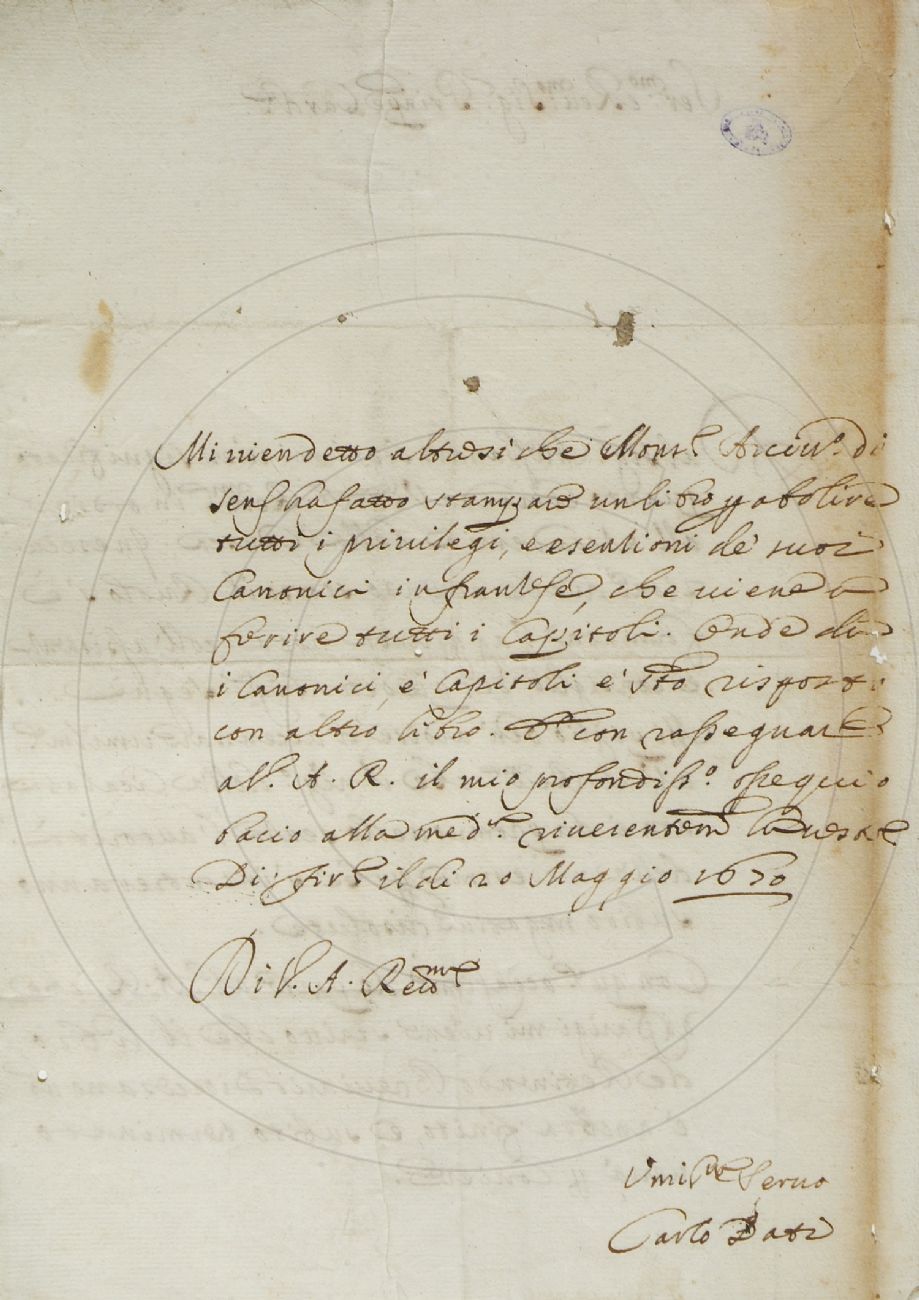 Mi vien detto altresi che Mons.e Arciv.o di
sens ha fatto stampare un libro p abolire
tutti i privilegi, e esentioni de' suoi
Canonici in franzese, che viene a
ferire tutti i Capitoli. Onde di
i Canonici, e' Capitoli e' stto risposto
con altro libro. E con rassegnare
a V. A. R. il mio profondiss.o ossequio
bacio alla med.a riverentem.e la veste
Di Fir.e il di 20 Maggio 1670
Di V. A. Rev.ma
Umil.mo Servo
Carlo Dati